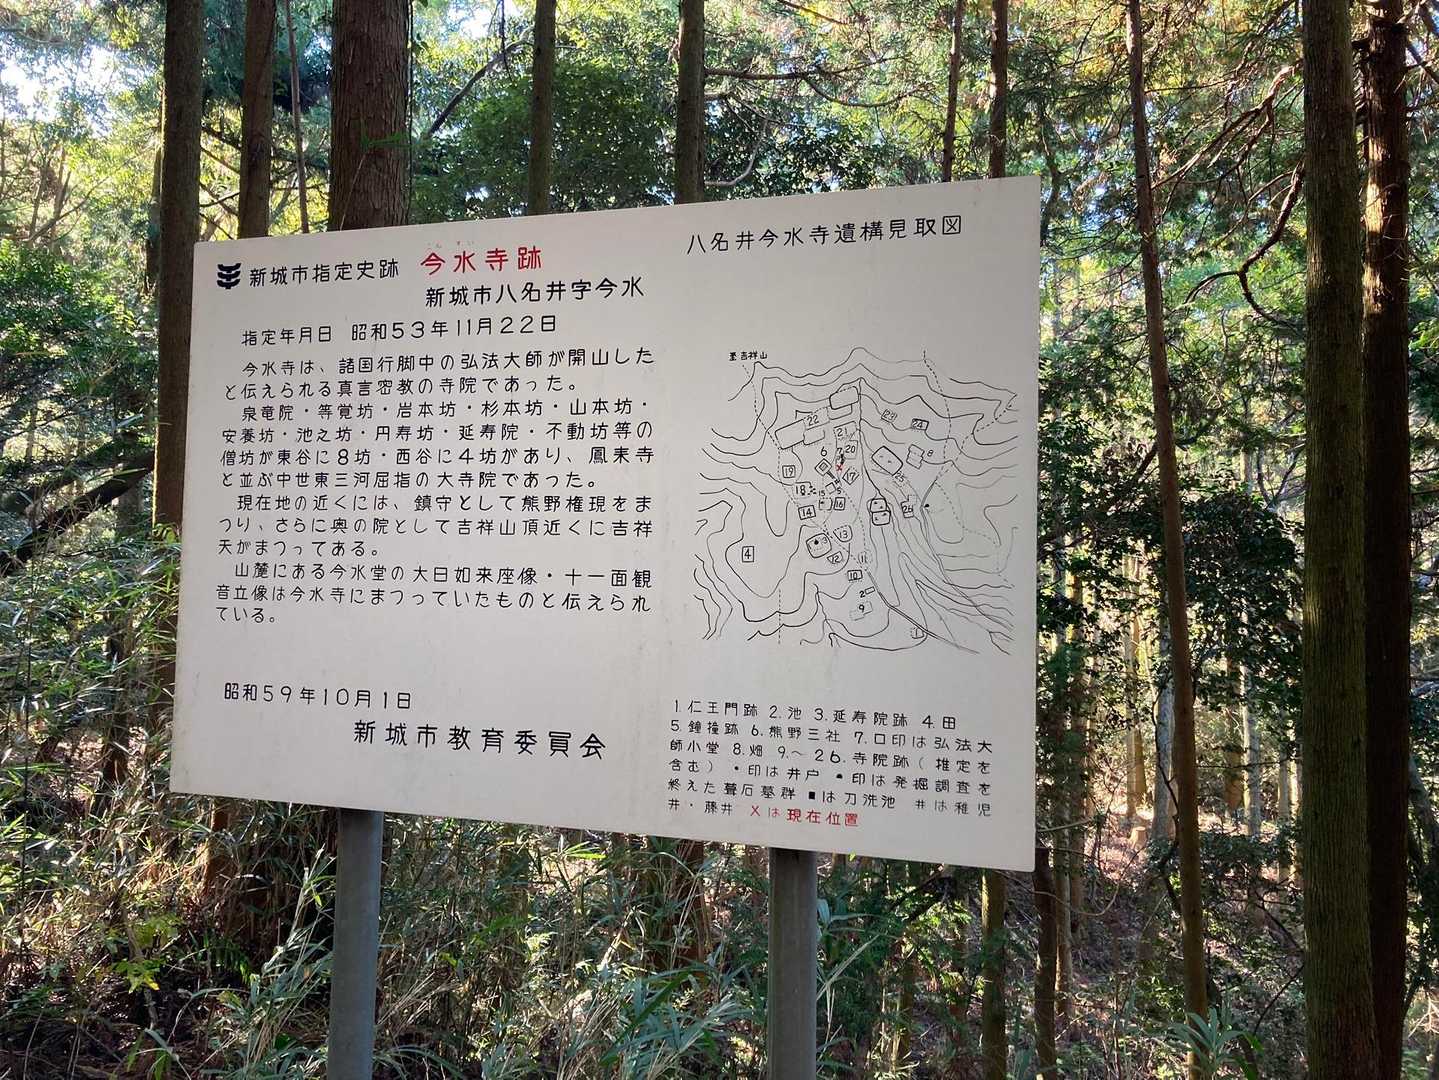 こんすい
新城市指定史跡 今水寺跡
新城市八名井字今水
指定年月日 昭和53年11月22日
今水寺は、諸国行脚中の弘法大師が開山した
と伝えられる真言密教の寺院であった。
泉竜院・等覚坊・岩本坊・杉本坊・山本坊・
安養坊・池之坊・円寿坊・延寿院・不動坊等の
僧坊が東谷に8坊・西谷に4坊があり、鳳来寺
と並ぶ中世東三河屈指の大寺院であった。
現在地の近くには、鎮守として熊野権現をま
つり、さらに奥の院として吉祥山頂近くに吉祥
天がまつってある。
山麓にある今水堂の大日如来座像・十一面観
音立像は今水寺にまつっていたものと伝えられ
ている。
昭和59年10月1日
新城市教育委員会
八名井今水寺遺構見取図
至吉祥山
22
23
24
21
6
7
20
8
19
17
25
18
15
5
14
16
26
4
13
12
11
10
2
9
1
1.仁王門跡 2.池 3.延寿院跡 4.田
5.鐘撞跡 6.熊野三社 7.口印は弘法大
師小堂 8.畑 9.～26.寺院跡(推定を
含む) ・印は井戸 ●印は発掘調査を
終えた蓍石墓群 ■は刀洗池 井は稚児
井・藤井 Xは現在位置